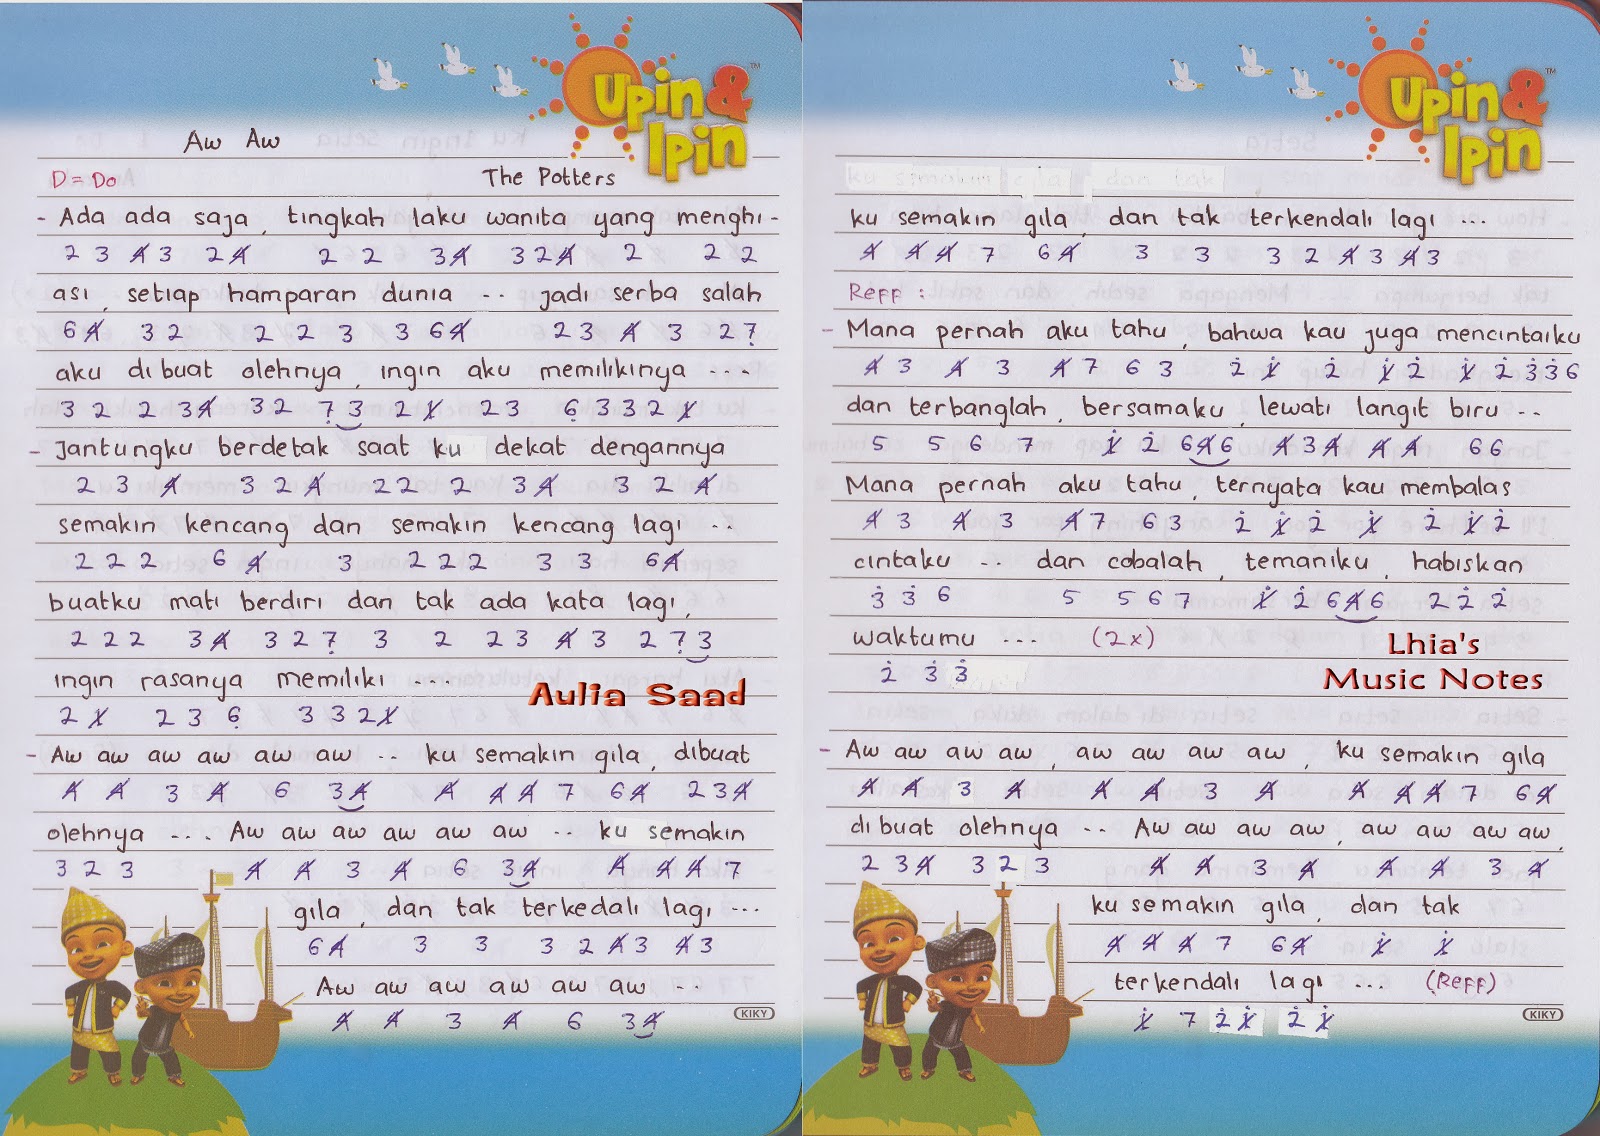 Upin &
Ipin
Aw Aw
D = Do
The Potters
- Ada ada saja, tingkah laku wanita yang menghi-
2 3 4̸ 3 2 4̸ 2 2 3 4̸ 3 2 4̸ 2 2 2
asi, setiap hamparan dunia -- jadi serba salah
6 4̸ 3 2 2 2 3 3 6 4̸ 2 3 4̸ 3 2 7̣
aku dibuat olehnya, ingin aku memilikinya ----
3 2 2 3 4̸ 3 2 7̣ 3 2 1̸ 2 3 6̣ 3 3 2 1̸
- Jantungku berdetak saat ku dekat dengannya
2 3 4̸ 3 2 4̸ 2 2 2 3 4̸ 3 2 4̸
semakin kencang dan semakin kencang lagi --
2 2 2 6 4̸ 3 2 2 2 3 3 6 4̸
buatku mati berdiri dan tak ada kata lagi,
2 2 2 3 4̸ 3 2 7̣ 3 2 2 3 4̸ 3 2 7̣ 3
ingin rasanya memiliki ---
2 1̸ 2 3 6̣ 3 3 2 1̸
Aulia Saad
- Aw aw aw aw aw aw -- ku semakin gila, dibuat
4̸ 4̸ 3 4̸ 6 3 4̸ 4̸ 4̸ 4̸ 7 6 4̸ 2 3 4̸
olehnya ---. Aw aw aw aw aw aw -- ku semakin
3 2 3 4̸ 4̸ 3 4̸ 6 3 4̸ 4̸ 4̸ 4̸ 7
gila, dan tak terkedali lagi ---
6 4̸ 3 3 3 2 4̸ 3 4̸ 3
Aw aw aw aw aw aw --
4̸ 4̸ 3 4̸ 6 3 4̸
KIKY
Upin &
Ipin
ku semakin gila, dan tak terkendali lagi ---
4̸ 4̸ 4̸ 7 6 4̸ 3 3 3 2 4̸ 3 4̸ 3
Reff :
- Mana pernah aku tahu, bahwa kau juga mencintaiku
4̸ 3 4̸ 3 4̸ 7 6 3 2̇ 1̸̇ 2̇ 1̸̇ 2̇ 1̸̇ 2̇ 3̇ 3̇ 6
dan terbanglah, bersamaku, lewati langit biru --
5 5 6 7 1̸̇ 2̇ 6 4̸ 6 4̸ 3 4̸ 4̸ 4̸ 6 6
Mana pernah aku tahu, ternyata kau membalas
4̸ 3 4̸ 3 4̸ 7 6 3 2̇ 1̸̇ 2̇ 1̸̇ 2̇ 1̸̇ 2̇
cintaku -- dan cobalah, temaniku, habiskan
3̇ 3̇ 6 5 5 6 7 1̸̇ 2̇ 6 4̸ 6 2 2̇ 2̇
waktumu --- (2x)
2̇ 3̇ 3̇
Lhia's
Music Notes
- Aw aw aw aw, aw aw aw aw, ku semakin gila
4̸ 4̸ 3 4̸ 4̸ 4̸ 3 4̸ 4̸ 4̸ 4̸ 7 6 4̸
dibuat olehnya -- Aw aw aw aw, aw aw aw aw,
2 3 4̸ 3 2 3 4̸ 4̸ 3 4̸ 4̸ 4̸ 3 4̸
ku semakin gila, dan tak
4̸ 4̸ 4̸ 7 6 4̸ 1̸̇ 1̸̇
terkendali lagi --- (Reff)
1̸̇ 7 2̇ 1̸̇ 2̇ 1̸̇
KIKY